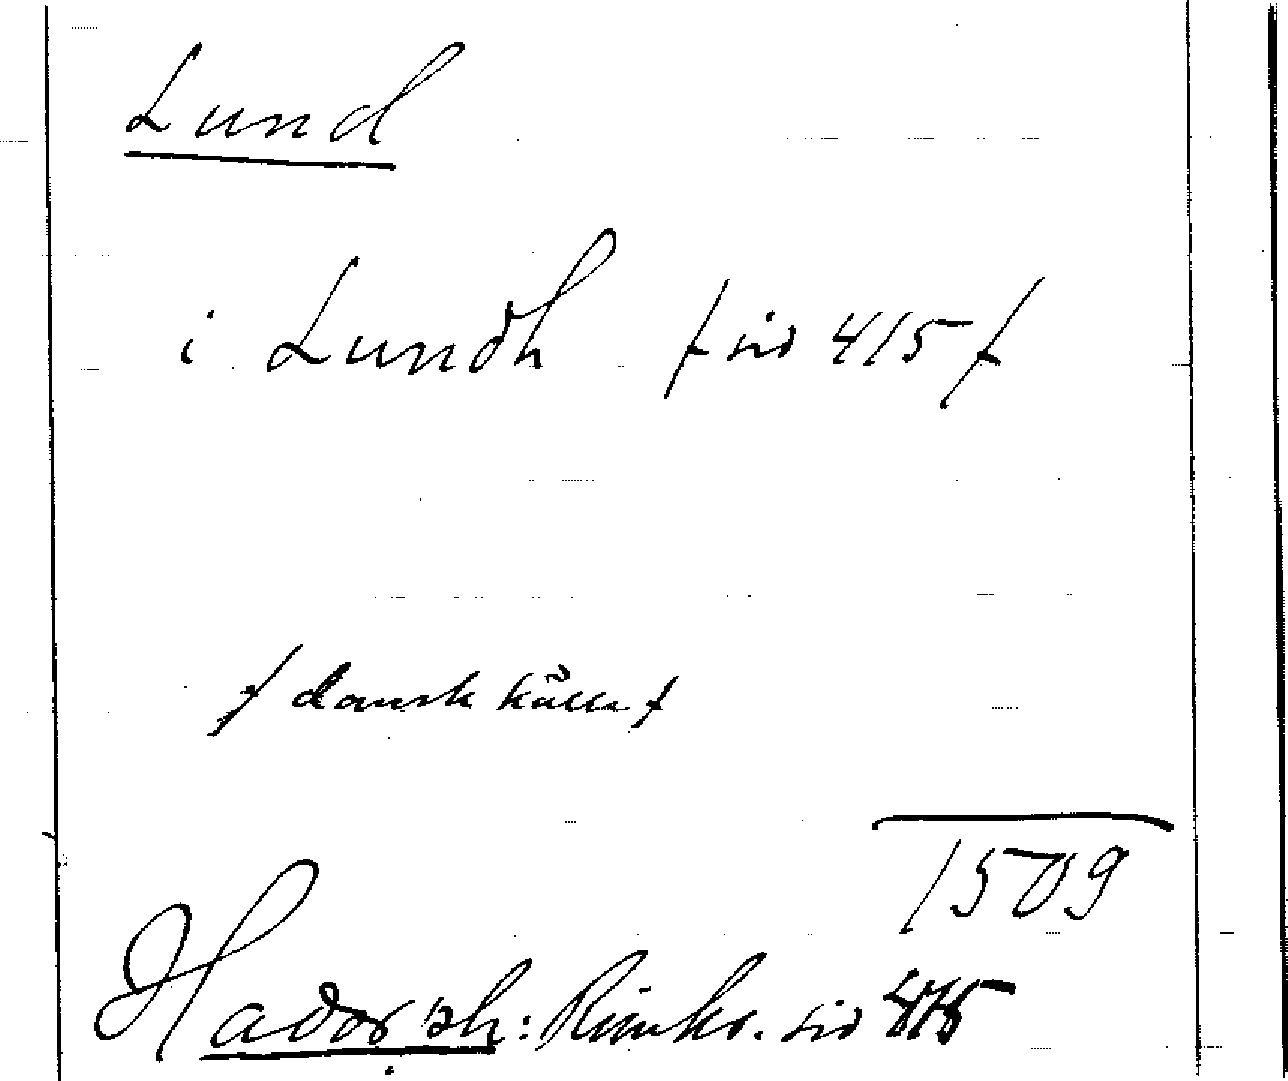 Lund
i Lundh / sid 415 /
/ dansk källa /
1509
Hadorph: Rimkr. sid 415